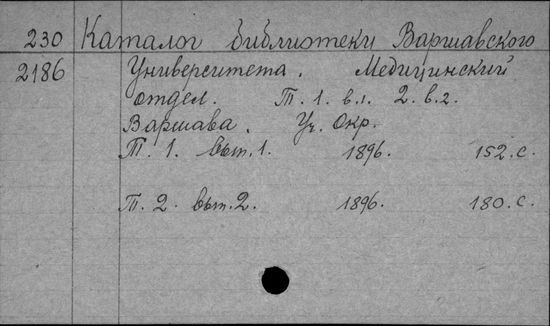 230 Каталог библиотеки Варшавского
2186 Университета. Медицинский
отдел. Т. 1. в.1. 2. в.2.
Варшава. Уч. Окр.
Т. 1. вып. 1. 1896. 152. с.
Т. 2. вып. 2. 1896. 180. с.